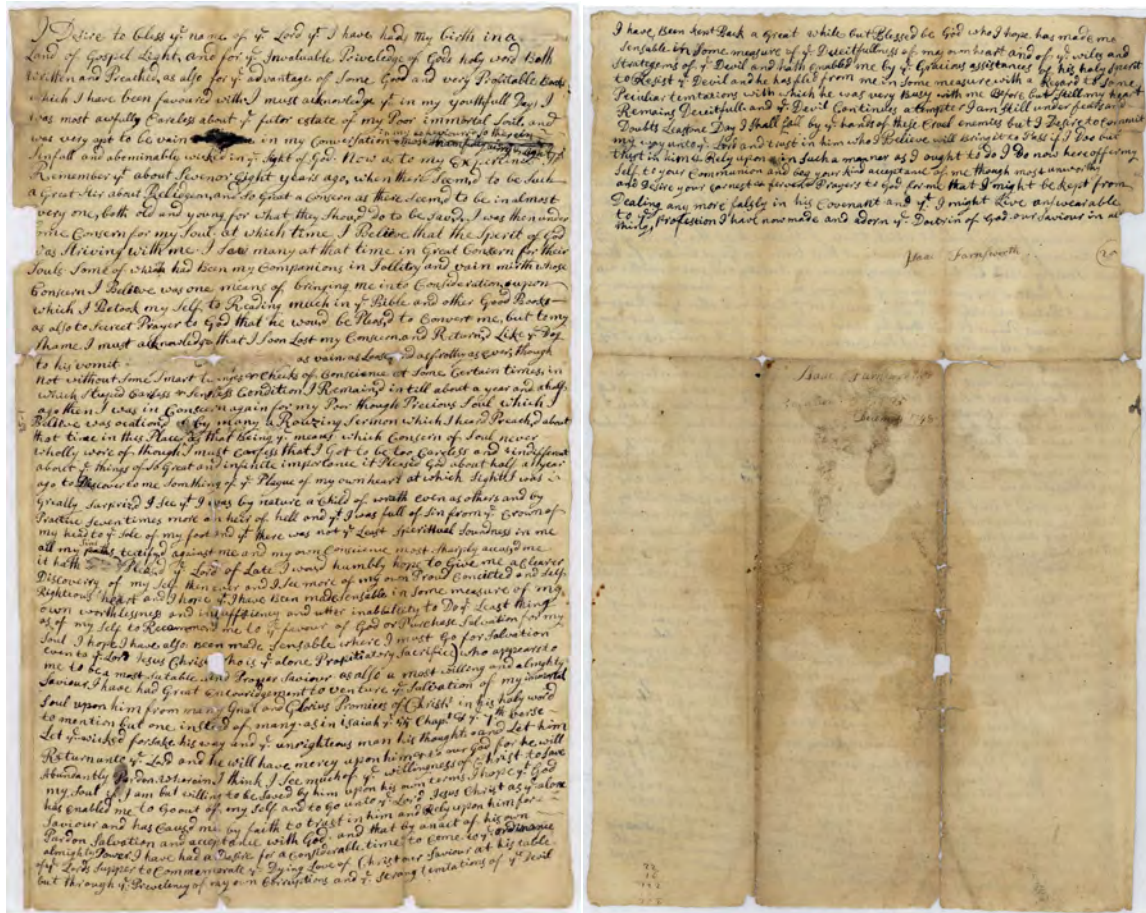 I Desire to bless yͤ name of yͤ Lord yͭ I have had my birth in a
Land of Gospel Light, and for yͤ Invaluable Priveledge of Gods holy word Both
Written and Preached, as also for yͤ advantage of Some Good and very Profitable Books
which I have been favoured with I must acknowledge yͭ in my youthfull Days I
was most awfully Careless about yͤ futer estate of my Poor immortal Soul, and
was very apt to be vain in my Conversation
Sinfull and abominably wicked in yͤ Sight of God. Now as to my Experiences
Remember yͭ about Seven or Eight years ago, when there Seem,d to be Such
a Great Stir about Religeon, and So Great a Concern as there Seem,d to be in almost
very one, both old and young for what they Should do to be Saved, I was then under
ome Concern for my Soul, at which time I Believe that the Sperit of God
was Striving with me I Saw many at that time in Great Concern for their
Souls Some of which had Been my Companions in Jollity and vain mirth whose
Consern I Believe was one means of bringing me into Consideration, upon
which I Betook my Self to Reading much in yͤ Bible and other Good Books
as also to Secret Prayer to God that he would be Pleas,d to Convert me, but to my
Shame I must acknowledge that I Soon Lost my Consern and Return,d Like yͤ Dog
to his vomit as vain as Loose and as frothy as ever, though
not without Some Smart twinges & Checks of Conscience at Some Certain times, in
which Stupid Careless & Senseless Condition I Remain,d in till about a year and a half
ago then I was in Concern again for my Poor though Precious Soul which I
Believe was ocationd by many a Rowzing Sermon which I heard Preach,d about
that time in this Place, as that Being yͤ means which Consern of Soul never
wholly wore of though I must Confess that I Got to be too Careless and indifferent
about yͤ things of So Great and infinite importance it Pleased God about half a year
ago to Discover to me Something of yͤ Plague of my own heart at which Sight I was
Greatly Surprized I See yͭ I was by nature a Child of wrath even as others and by
Practice Seven times more an heir of hell and yͭ I was full of Sin from yͤ Crown of
my head to yͤ Sole of my foot and yͭ there was not yͤ Least Speritual Soundness in me
all my Sins testifyd against me and my own Conscience most Sharply accused me
it hath Pleased yͤ Lord of Late I would humbly hope to Give me a Clearer
Discovery of my Self then ever and I See more of my own Proud Conceited and Self
Righteous heart and I hope yͭ I have Been made Sensable in Some measure of my
own worthlessness and insuffitiency and utter inabillity to Do yͤ Least thing
as of my Self to Recommend me to yͤ favour of God or Purchase Salvation for my
Soul I hope I have also Been made Sensable where I must Go for Salvation
even to yͤ Lord Jesus Christ who is yͤ alone Propitiatory Sacrifice) who appears to
me to be a most Sutable and Proper Saviour as also a most willing and almighty
Saviour, I have had Great Encouridgement to venture yͤ Salvation of my immortal
Soul upon him from many Great and Glorius Promices of Christ in his holy word
to mention but one insted of many as in isaiah yͤ 55 Chapͭ & yͤ 7ͭͪ verse
Let yͤ wicked forsake his way and yͤ unrighteous man his thoughts and Let him
Return unto yͤ Lord and he will have mercy upon him & to our God for he will
Abundantly Pardon. Wherein I think I See much of yͤ willingness of Christ to Save
my Soul if I am but willing to be Saved by him upon his own terms I hope yͭ God
has Enabled me to Go out of my Self and to Go unto yͤ Lord Jesus Christ as yͤ alone
Saviour and has Caused me by faith to trust in him and Rely upon him for
Pardon Salvation and acceptance with God and that by an act of his own
almighty Power I have had a Desire for a Considerable time to Come to yͤ ordinance
of yͤ Lords Supper to Commemorate yͤ Dying Love of Christ our Saviour at his table
but through yͤ Prevelency of my own Corruptions and yͤ Strong temtations of yͤ Devil
I have Been kept Back a Great while but Blessed be God who I hope has made me
Sensable in Some measure of yͤ Deceitfullness of my own heart and of yͤ wiles and
Strategems of yͤ Devil and hath Enabled me by yͤ Gracious assistances by his holy Sperit
to Resist yͤ Devil and he has fled from me in Some measure with a Regard to Some
Peculiar temtations with which he was very Busy with me Before, but Still my heart
Remains Deceitfull and yͤ Devil Continues a tempter I am Still under fears and
Doubts Least one Day I Shall fall by yͤ hands of these Cruel enemies but I Desire to Commit
my way unto yͤ Lord and trust in him who I Believe will Bring it to Pass if I Do but
trust in him & Rely upon him in Such a manner as I ought to do I Do now here offer my
Self to your Communion and beg your kind acceptance of me though most unworthy
and Desire your earnest & fervent Prayers to God for me that I might be kept from
Dealing any more falsly in his Covenant and yͭ I might Live answearable
to yͤ Profession I have now made and adorn yͤ Doctrin of God our Saviour in al
things
Isaac Farnsworth
Isaac Farnsworth